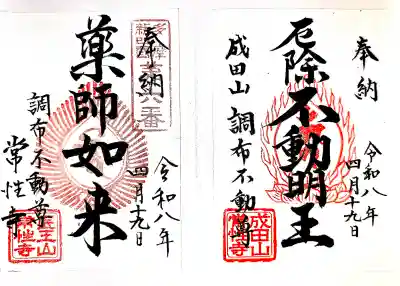 奉納
厄除不動明王
成田山 調布不動尊
令和八年
四月十九日
成田山
常性寺
奉納
薬師如来
調布不動尊
常性寺
令和八年
四月十九日
医王山
常性寺